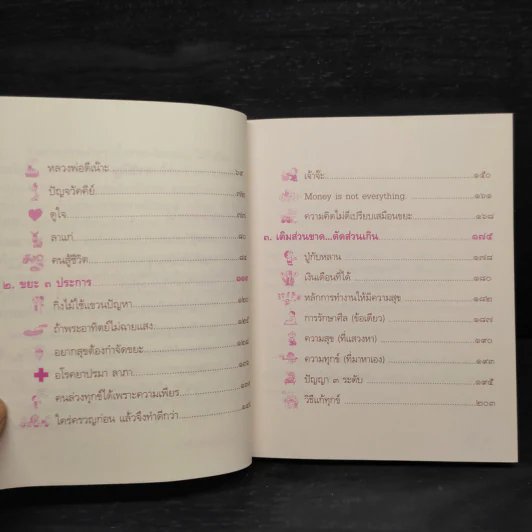 หลวงพ่อดีเน๊าะ
ปัญจวัคคีย์ ๗๒
ดูใจ
ลาแก่ ๘๐
คนสู้ชีวิต
๒. ขยะ ๓ ประการ
กิ่งไม้ใช้แขวนปัญหา ๑๒๐
ถ้าพระอาทิตย์ไม่ฉายแสง
อยากสุขต้องกำจัดขยะ
อโรคยาปรมา ลาภา
คนล่วงทุกข์ได้เพราะความเพียร
ใคร่ครวญก่อน แล้วจึงทำดีกว่า
เจ้าจ๊ะ ๑๕๐
Money is not everything. ๑๖๑
ความคิดไม่ดีเปรียบเสมือนขยะ ๑๖๘
๓. เติมส่วนขาด...ตัดส่วนเกิน ๑๗๕
ปู่กับหลาน ๑๗๘
เงินเดือนที่ได้ ๑๘๐
หลักการทำงานให้มีความสุข ๑๘๒
การรักษาศีล (ข้อเดียว) ๑๘๗
ความสุข (ที่แสวงหา) ๑๙๐
ความทุกข์ (ที่มาหาเอง) ๑๙๓
ปัญญา ๓ ระดับ ๑๙๕
วิธีแก้ทุกข์ ๒๐๓